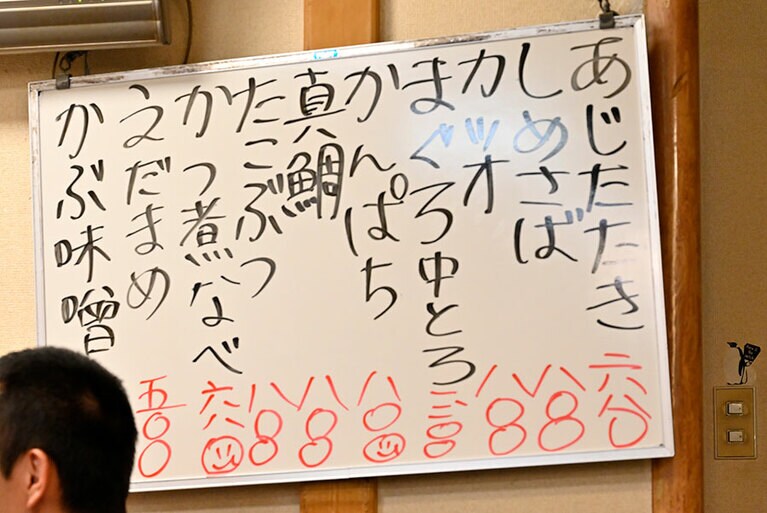 あじたたき
しめさば 八〇〇
カツオ 八〇〇
まぐろ中とろ
かんぱち 八〇〇
真鯛 八〇〇
たこぶつ 八〇〇
かつ煮なべ 六八〇
えだまめ 五〇〇
かぶ味噌